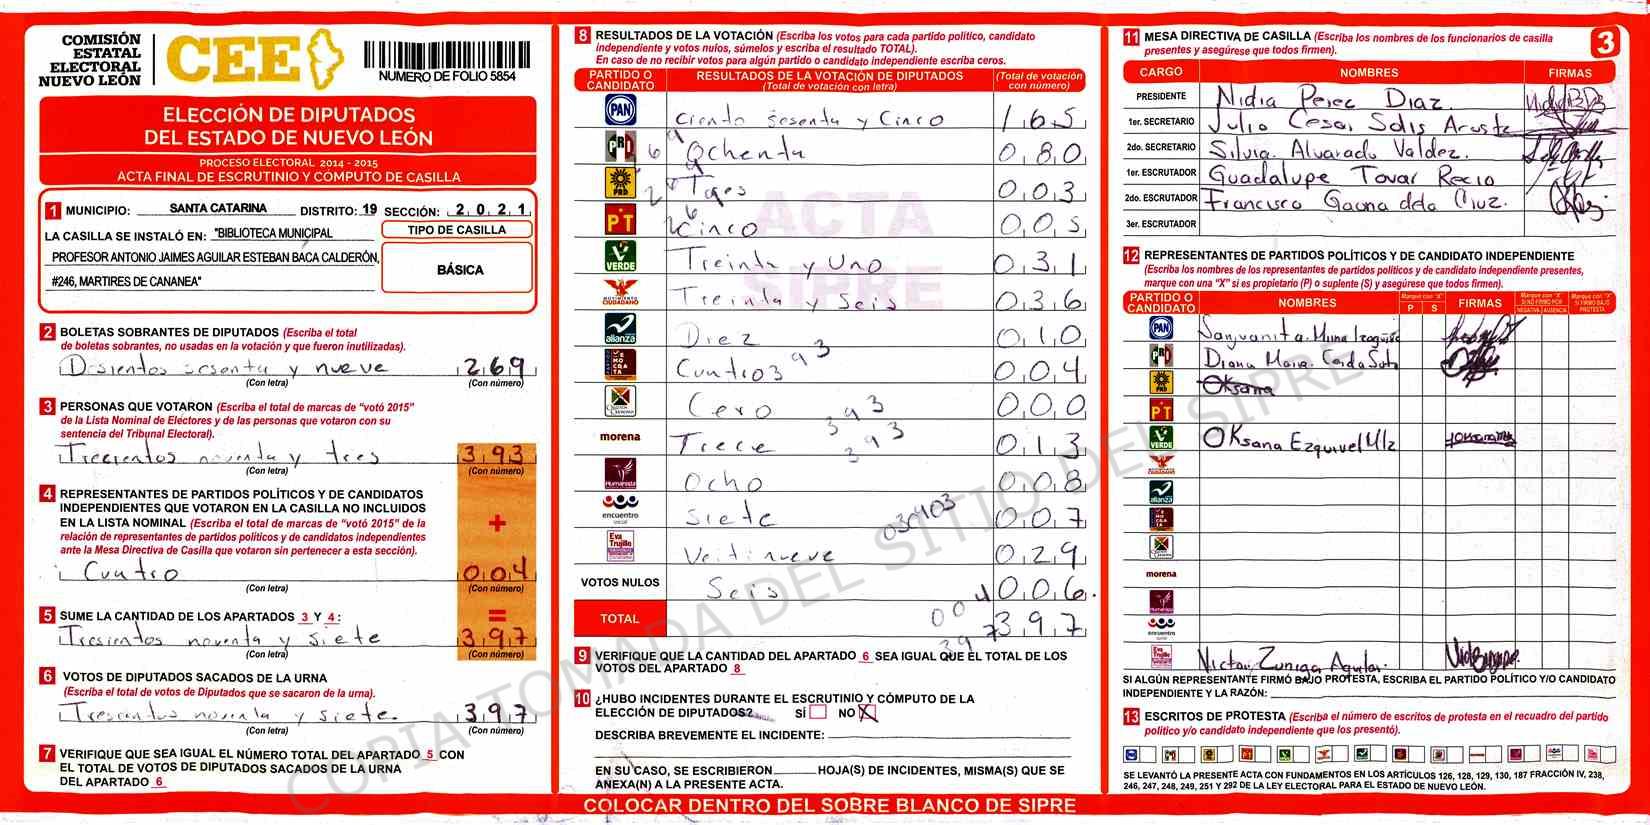 COMISIÓN
ESTATAL
ELECTORAL
NUEVO LEÓN
CEE
NUMERO DE FOLIO 5854
ELECCIÓN DE DIPUTADOS
DEL ESTADO DE NUEVO LEÓN
PROCESO ELECTORAL 2014 - 2015
ACTA FINAL DE ESCRUTINIO Y CÓMPUTO DE CASILLA
1 MUNICIPIO: SANTA CATARINA DISTRITO: 19 SECCIÓN: 2 0 2 1
LA CASILLA SE INSTALÓ EN: "BIBLIOTECA MUNICIPAL
PROFESOR ANTONIO JAIMES AGUILAR ESTEBAN BACA CALDERÓN,
#246, MARTIRES DE CANANEA"
TIPO DE CASILLA
BÁSICA
2 BOLETAS SOBRANTES DE DIPUTADOS (Escriba el total
de boletas sobrantes, no usadas en la votación y que fueron inutilizadas).
Dosientos sesenta y nueve 269
(Con letra) (Con número)
3 PERSONAS QUE VOTARON (Escriba el total de marcas de "votó 2015"
de la Lista Nominal de Electores y de las personas que votaron con su
sentencia del Tribunal Electoral).
Trecientos noventa y tres 393
(Con letra) (Con número)
4 REPRESENTANTES DE PARTIDOS POLÍTICOS Y DE CANDIDATOS
INDEPENDIENTES QUE VOTARON EN LA CASILLA NO INCLUIDOS
EN LA LISTA NOMINAL (Escriba el total de marcas de "votó 2015" de la
relación de representantes de partidos políticos y de candidatos independientes
ante la Mesa Directiva de Casilla que votaron sin pertenecer a esta sección).
+
Cuatro 004
(Con letra) (Con número)
=
5 SUME LA CANTIDAD DE LOS APARTADOS 3 Y 4:
Tresientos noventa y siete 397
(Con letra) (Con número)
6 VOTOS DE DIPUTADOS SACADOS DE LA URNA
(Escriba el total de votos de Diputados que se sacaron de la urna).
Trescientos noventa y siete. 397
(Con letra) (Con número)
7 VERIFIQUE QUE SEA IGUAL EL NÚMERO TOTAL DEL APARTADO 5 CON
EL TOTAL DE VOTOS DE DIPUTADOS SACADOS DE LA URNA
DEL APARTADO 6
8 RESULTADOS DE LA VOTACIÓN (Escriba los votos para cada partido político, candidato
independiente y votos nulos, súmelos y escriba el resultado TOTAL).
En caso de no recibir votos para algún partido o candidato independiente escriba ceros.
PARTIDO O CANDIDATO RESULTADOS DE LA VOTACIÓN DE DIPUTADOS (Total de votación con letra) (Total de votación con número)
PAN Ciento sesenta y Cinco 165
PRD Ochenta 080
PRD Tres 003
PT Cinco 005
VERDE Treinta y Uno 031
MOVIMIENTO CIUDADANO Treinta y Seis 036
alianza Diez 010
DEMOCRATA Cuatro 004
Cero 000
morena Trece 013
Humanista Ocho 008
encuentro social Siete 007
Eva Trujillo Veitinueve 029
VOTOS NULOS Seis 006.
TOTAL 397
393
393
393
004
397
ACTA
SIPRE
COPIA TOMADA DEL SITIO DEL SIPRE
9 VERIFIQUE QUE LA CANTIDAD DEL APARTADO 6 SEA IGUAL QUE EL TOTAL DE LOS
VOTOS DEL APARTADO 8
10 ¿HUBO INCIDENTES DURANTE EL ESCRUTINIO Y CÓMPUTO DE LA
ELECCIÓN DE DIPUTADOS? SÍ NO X
DESCRIBA BREVEMENTE EL INCIDENTE:
EN SU CASO, SE ESCRIBIERON HOJA(S) DE INCIDENTES, MISMA(S) QUE SE
ANEXA(N) A LA PRESENTE ACTA.
COLOCAR DENTRO DEL SOBRE BLANCO DE SIPRE
11 MESA DIRECTIVA DE CASILLA (Escriba los nombres de los funcionarios de casilla
presentes y asegúrese que todos firmen).
3
CARGO NOMBRES FIRMAS
PRESIDENTE Nidia Perez Diaz.
1er. SECRETARIO Julio Cesar Solis
2do. SECRETARIO Silvia. Alvarado Valdez.
1er. ESCRUTADOR Guadalupe Tovar Recio
2do. ESCRUTADOR Francisco Gauna dela Cruz.
3er. ESCRUTADOR
12 REPRESENTANTES DE PARTIDOS POLÍTICOS Y DE CANDIDATO INDEPENDIENTE
(Escriba los nombres de los representantes de partidos políticos y de candidato independiente presentes,
marque con una "X" si es propietario (P) o suplente (S) y asegúrese que todos firmen).
PARTIDO O CANDIDATO NOMBRES Marque con "X" P S FIRMAS Marque con "X" SI NO FIRMÓ POR NEGATIVA AUSENCIA Marque con "X" SI FIRMÓ BAJO PROTESTA
PAN Sanjuanita
Diana Maria
PRD Oksana
PT
VERDE Oksana Ezquivel Mtz
alianza
morena
Humanista
encuentro
Eva Trujillo Victor Zuniga Aguilar.
SI ALGÚN REPRESENTANTE FIRMÓ BAJO PROTESTA, ESCRIBA EL PARTIDO POLÍTICO Y/O CANDIDATO
INDEPENDIENTE Y LA RAZÓN:
13 ESCRITOS DE PROTESTA (Escriba el número de escritos de protesta en el recuadro del partido
político y/o candidato independiente que los presentó).
SE LEVANTÓ LA PRESENTE ACTA CON FUNDAMENTOS EN LOS ARTÍCULOS 126, 128, 129, 130, 187 FRACCIÓN IV, 238,
246, 247, 248, 249, 251 Y 292 DE LA LEY ELECTORAL PARA EL ESTADO DE NUEVO LEÓN.